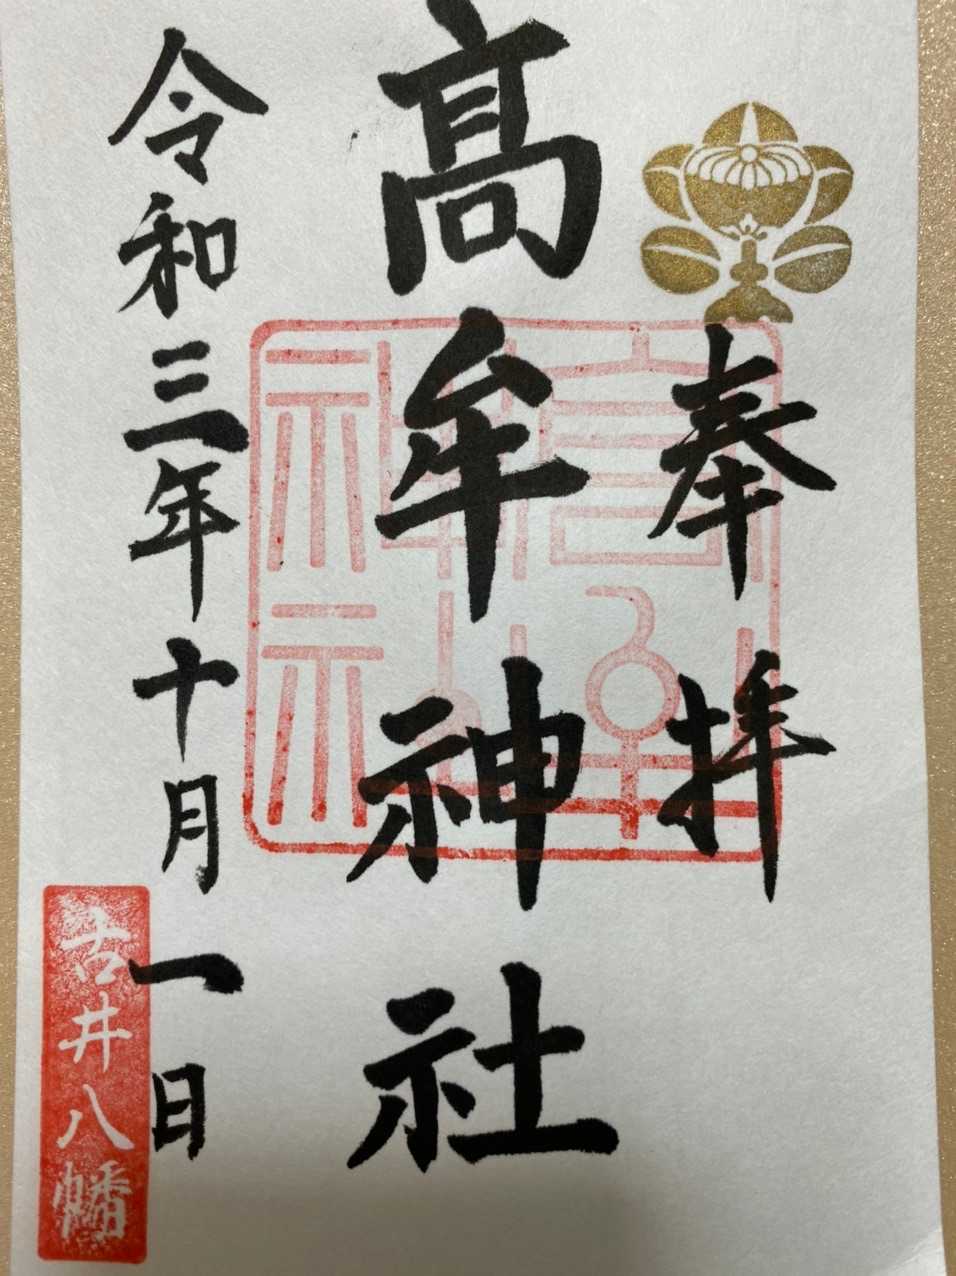 奉拝
髙牟神社
令和三年十月一日
古井八幡
髙牟
神社